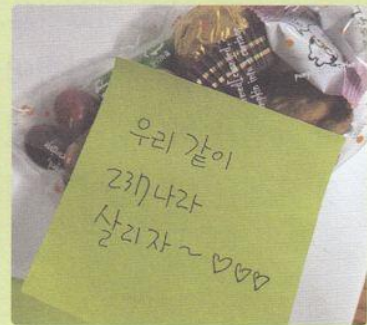 우리 같이
237나라
살리자~ ♡♡♡